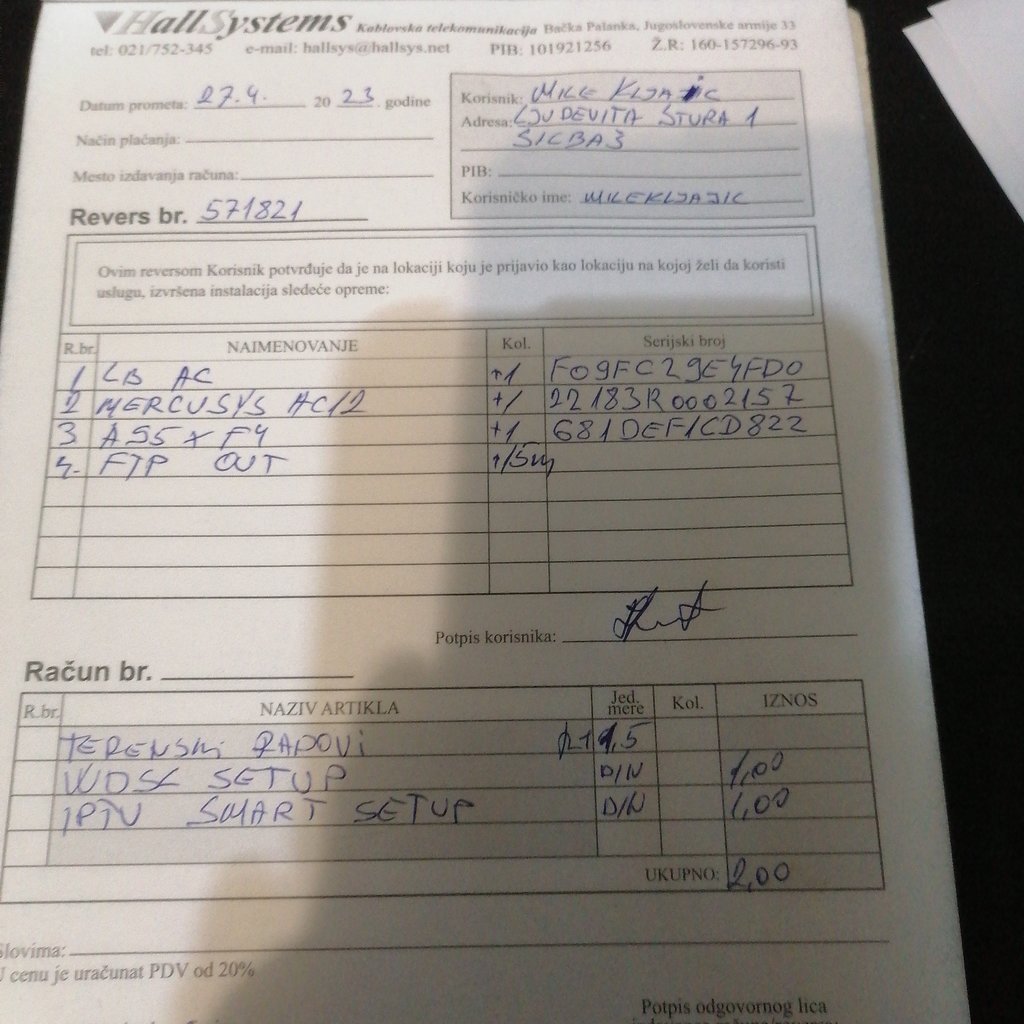 HallSystems Kablovska telekomunikacija Bačka Palanka, Jugoslovenske armije 33
tel: 021/752-345 e-mail: hallsys@hallsys.net PIB: 101921256 Ž.R: 160-157296-93
Datum prometa: 27.4. 20 23. godine
Način plaćanja:
Mesto izdavanja računa:
Revers br. 571821
Korisnik: MILE KLJAJIC
Adresa: LJUDEVITA ŠTURA 1
SILBAŠ
PIB:
Korisničko ime: MILEKLJAJIC
Ovim reversom Korisnik potvrđuje da je na lokaciji koju je prijavio kao lokaciju na kojoj želi da koristi
uslugu, izvršena instalacija sledeće opreme:
R.br. NAIMENOVANJE Kol. Serijski broj
1 LB AC +1 F09FC29E4FD0
2 MERCUSYS AC12 +1 22183R0002157
3 A95X F4 +1 681DEF1CD822
4. FTP OUT +15m
Potpis korisnika:
Račun br.
R.br. NAZIV ARTIKLA Jed. mere Kol. IZNOS
TERENSKI RADOVI 1,5
WDSL SETUP DIN 1,00
IPTV SMART SETUP DIN 1,00
UKUPNO: 2,00
Slovima:
U cenu je uračunat PDV od 20%
Potpis odgovornog lica